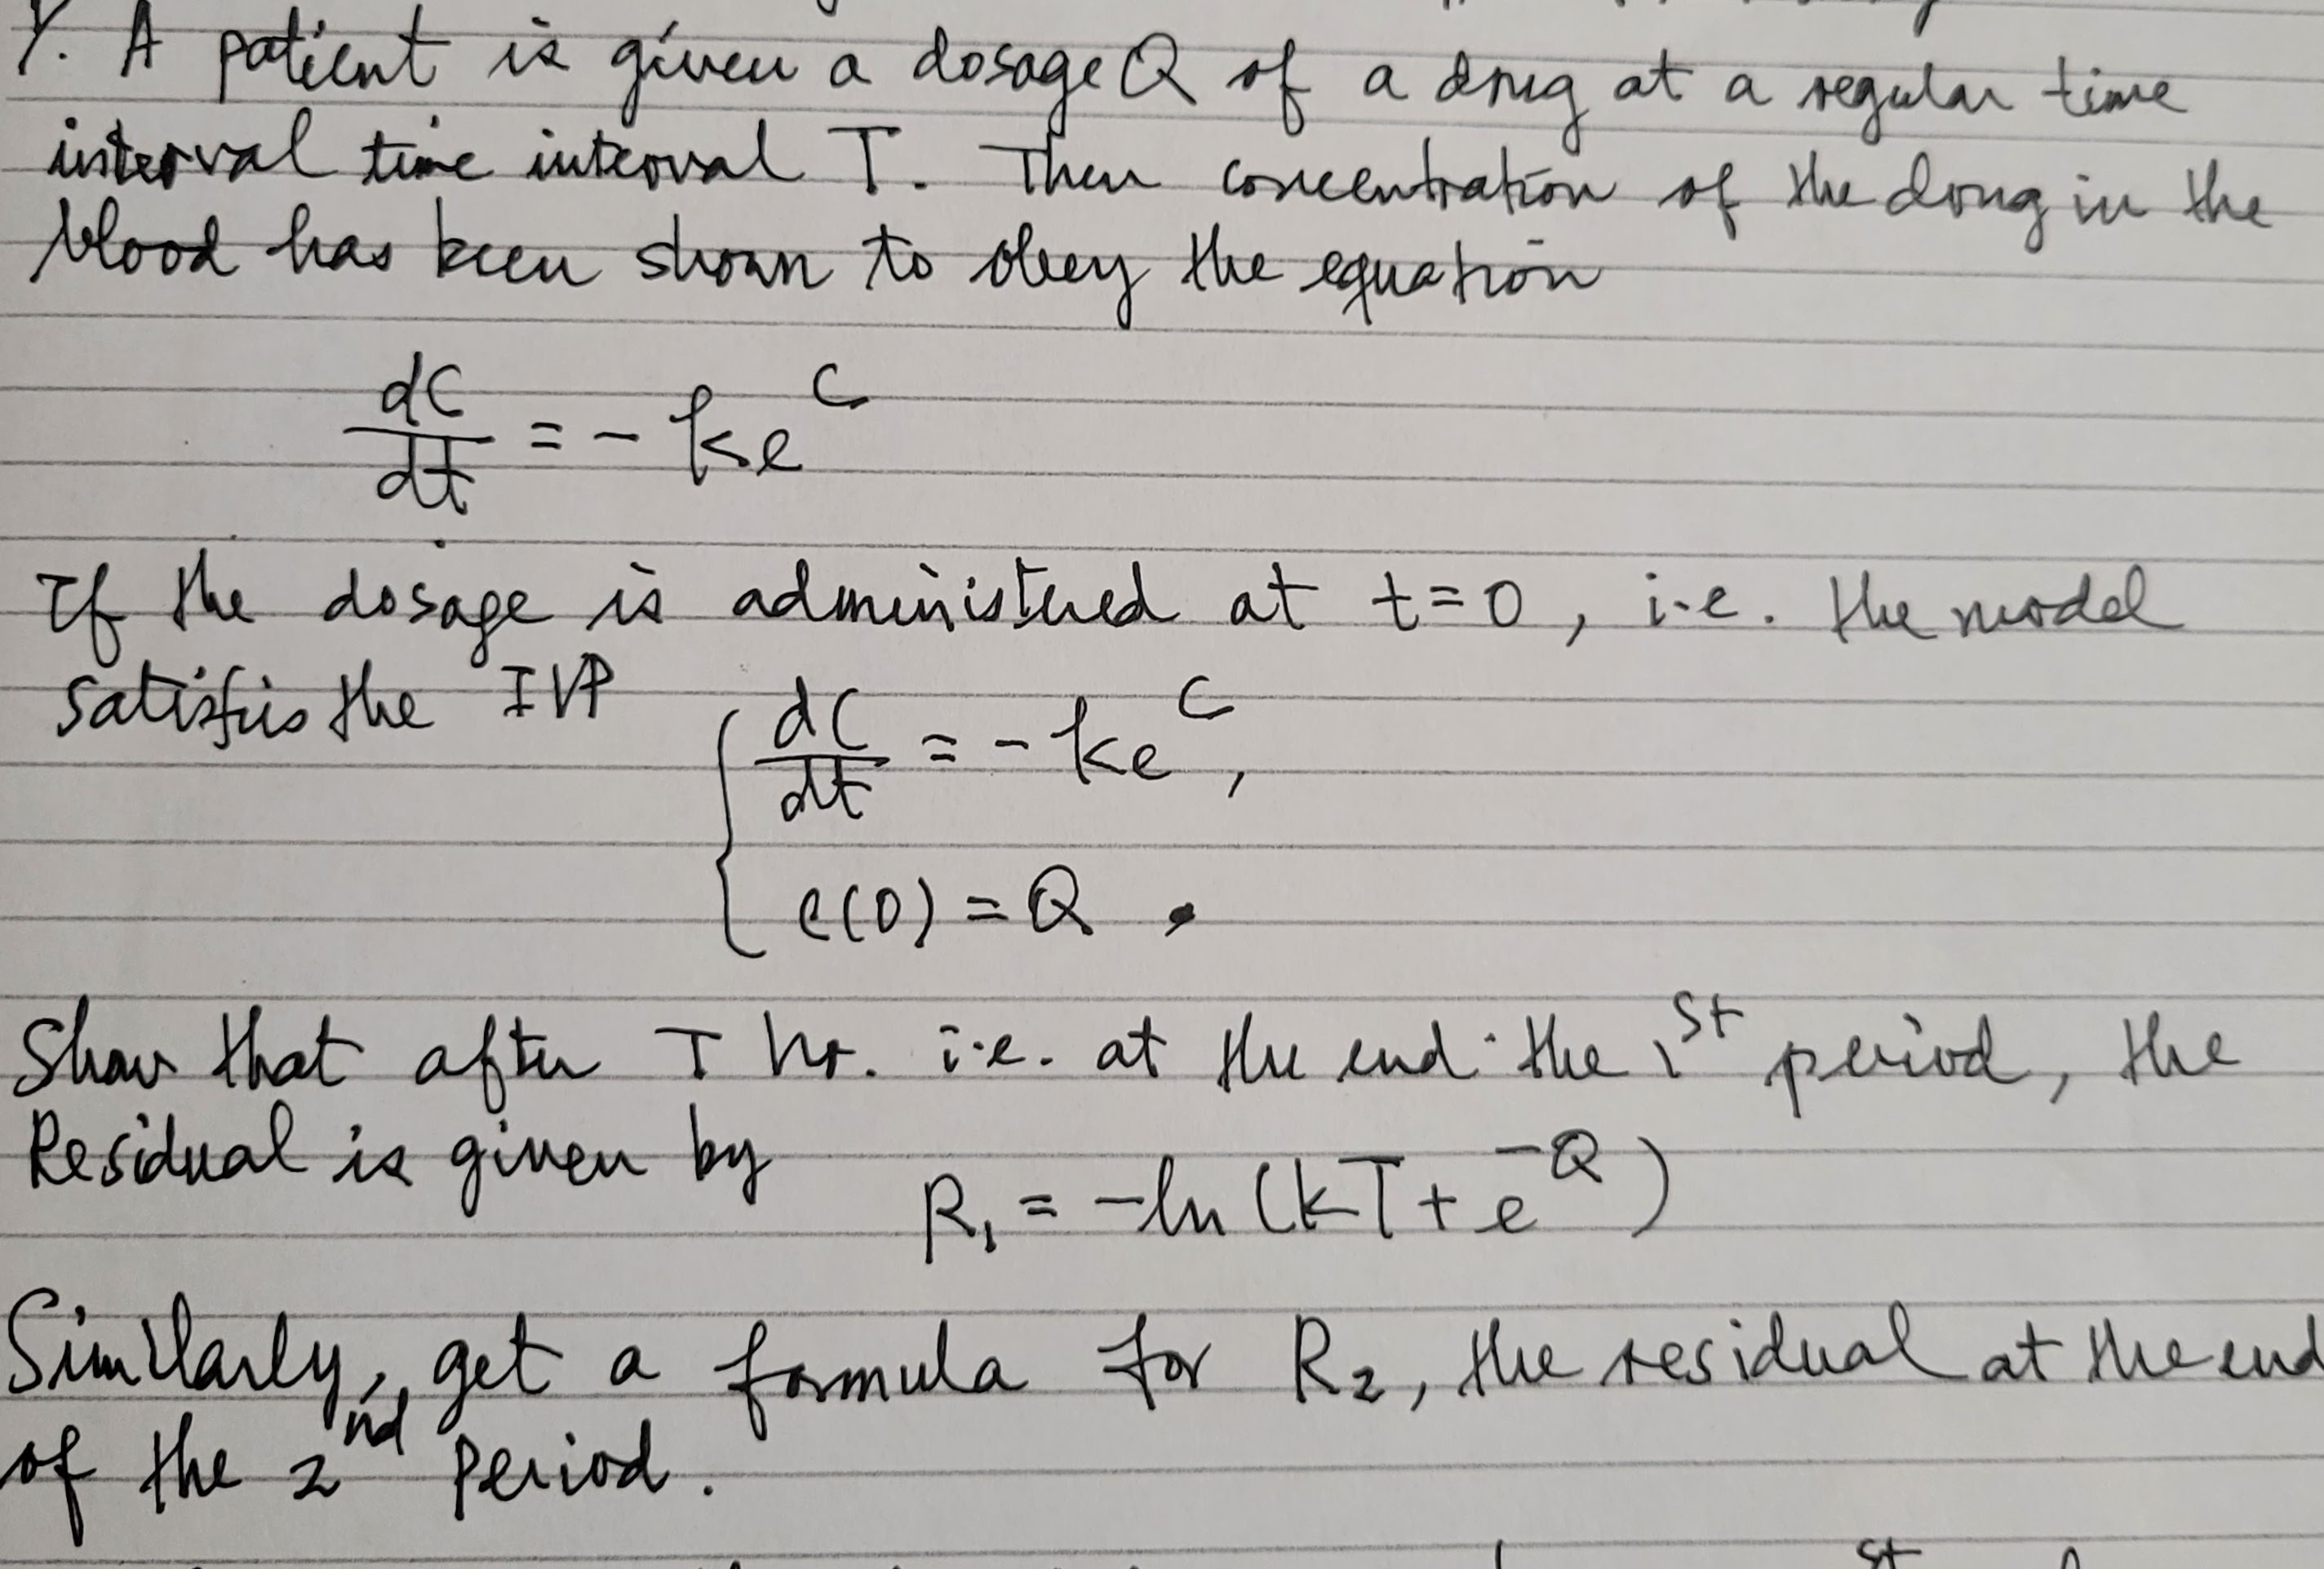 Y. A patient is given a dosage Q of a drug at a regular time
interval time interval T. Then concentration of the drug in the
blood has been shown to obey the equation
dC/dt = - ke^C
If the dosage is administered at t=0, i.e. the model
satisfies the IVP
dC/dt = - ke^C,
c(0) = Q .
Show that after T hr. i.e. at the end the 1st period, the
Residual is given by R₁ = -ln (kT + e^-Q)
Similarly, get a formula for R₂, the residual at the end
of the 2nd period.